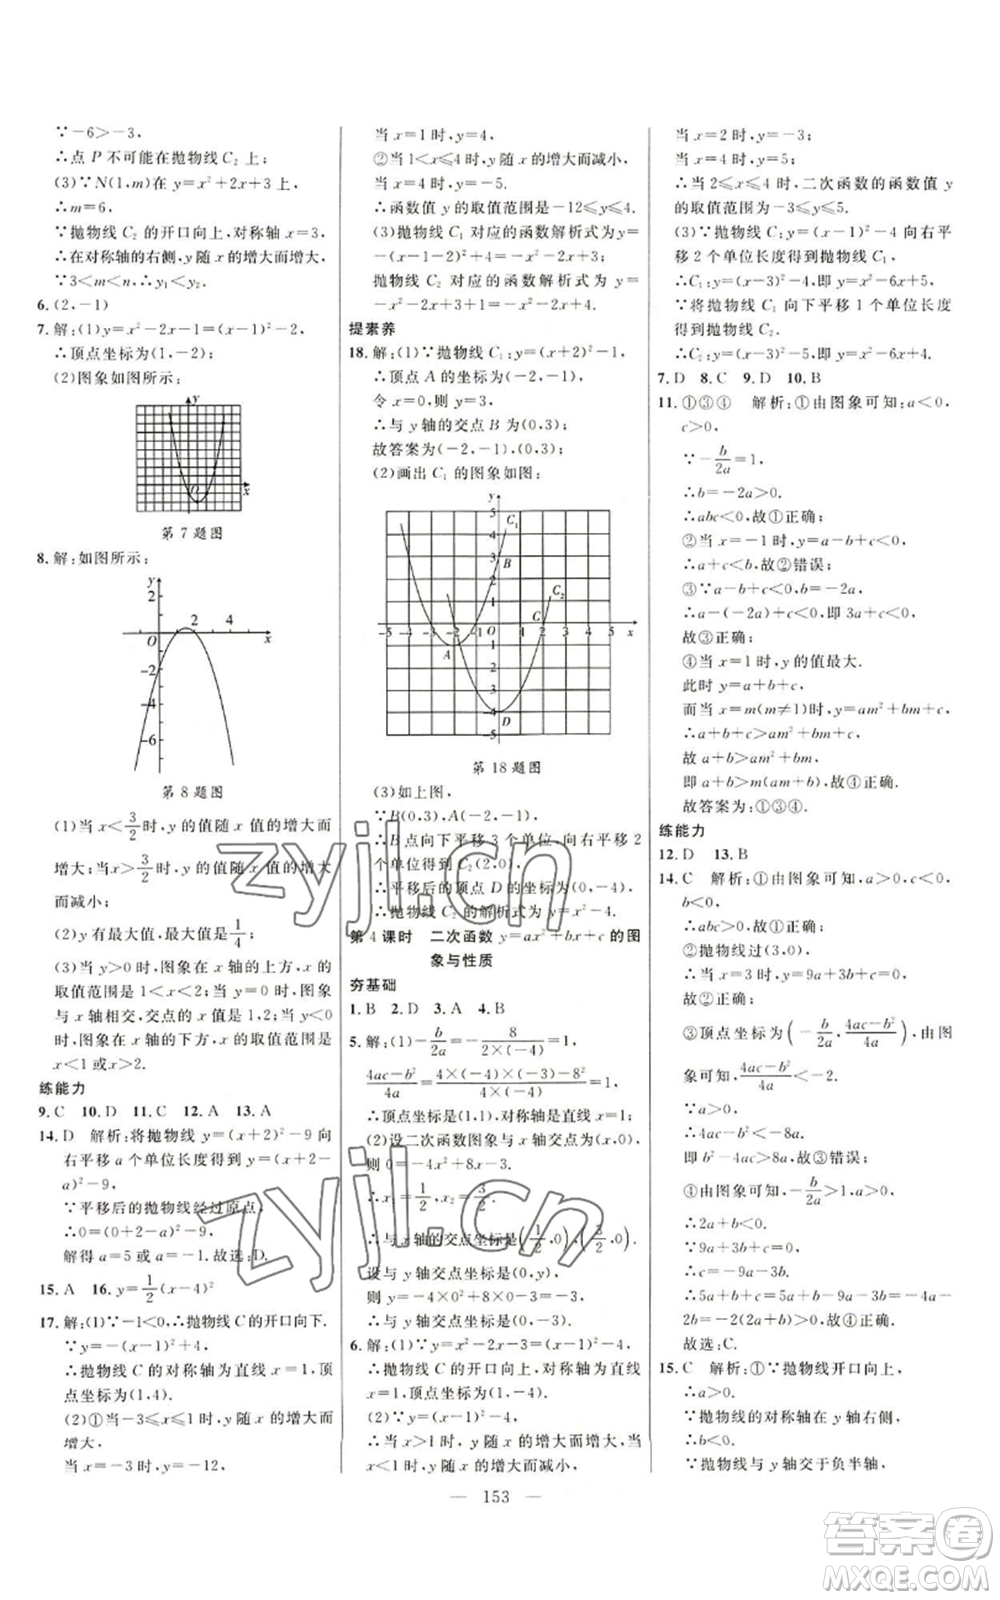 ∵－6＞－3，
∴点 P 不可能在抛物线 C₂ 上；
(3)∵N(1,m)在 y＝x²＋2x＋3 上，
∴m＝6，
∵抛物线 C₂ 的开口向上，对称轴为 x＝3，
∴在对称轴的右侧，y 随 x 的增大而增大，
∵3＜m＜n，∴y₁＜y₂.
6. (2，－1)
7. 解：(1)y＝x²－2x－1＝(x－1)²－2，
∴顶点坐标为(1，－2)；
(2)图象如图所示：
y
O
x
第 7 题图
8. 解：如图所示：
y
2
2 4
O x
－2
－4
－6
第 8 题图
(1)当 x＜3/2 时，y 的值随 x 值的增大而
增大；当 x＞3/2 时，y 的值随 x 值的增大
而减小，
(2)y 有最大值，最大值是 1/4；
(3)当 y＞0 时，图象在 x 轴的上方，x 的
取值范围是 1＜x＜2；当 y＝0 时，图象
与 x 轴相交，交点的值是 1，2；当 y＜0
时，图象在 x 轴的下方，x 的取值范围是
x＜1 或 x＞2.
练能力
9. C 10. D 11. C 12. A 13. A
14. D 解析：将抛物线 y＝(x＋2)²－9 向
右平移 a 个单位长度得到 y＝(x＋2－
a)²－9，
∵平移后的抛物线经过原点，
∴0＝(0＋2－a)²－9，
解得 a＝5 或 a＝－1. 故选：D.
15. A 16. y＝1/2(x－4)²
17. 解：(1)∵－1＜0，∴抛物线 C 的开口向下.
∵y＝－(x－1)²＋4，
∴抛物线 C 的对称轴为直线 x＝1，顶
点坐标为(1，4)；
(2)①当－3≤x≤1 时，y 随 x 的增大而
增大，
当 x＝－3 时，y＝－12，
当 x＝1 时，y＝4，
②当 1＜x≤4 时，y 随 x 的增大而减小，
当 x＝4 时，y＝－5.
∴函数值 y 的取值范围是－12≤y≤4.
(3)抛物线 C₁ 对应的函数解析式为 y＝
－(x－1)²＋4＋1＝－x²＋2x＋4，
抛物线 C₂ 对应的函数解析式为 y＝
－x²－2x＋3＋1＝－x²－2x＋4.
提素养
18. 解：(1)∵抛物线 C₁：y＝(x＋2)²－1，
∴顶点 A 的坐标为(－2，－1)，
令 x＝0，则 y＝3，
∴与 y 轴的交点 B 为(0，3)；
故答案为(－2，－1)，(0，3)；
(2)画出 C₁ 的图象如图：
y
5 C₁
4
3 B
2
1 C C₂
－5 －4 －3 －2 －1 O 1 2 3 4 5 x
A －1
－2
－3
－4 D
－5
第 18 题图
(3)如上图，
∵B(0，3)，A(－2，－1)，
∴B 点向下平移 3 个单位，向右平移 2
个单位得到 C₂(2，0)，
∴平移后的顶点 D 的坐标为(0，－4)，
∴抛物线 C₂ 的解析式为 y＝x²－4.
第 4 课时 二次函数 y＝ax²＋bx＋c 的图
象与性质
夯基础
1. B 2. D 3. A 4. B
5. 解：(1)－b/2a＝－8/(2×(－4))＝1，
(4ac－b²)/4a＝(4×(－4)×(－3)－8²)/(4×(－4))＝1，
∴顶点坐标是(1，1)，对称轴是直线 x＝1；
(2)设二次函数图象与 x 轴交点为(x，0)，
则 0＝－4x²＋8x－3，
∴x₁＝1/2，x₂＝3/2.
∴与 x 轴的交点坐标是(1/2，0)，(3/2，0).
设与 y 轴交点坐标是(0，y)，
则 y＝－4×0²＋8×0－3＝－3，
∴与 y 轴交点坐标是(0，－3).
6. 解：(1)∵y＝x²－2x－3＝(x－1)²－4，
∴抛物线 C 的开口向上，对称轴为直线
x＝1，顶点坐标为(1，－4)；
(2)∵y＝(x－1)²－4，
∴当 x＞1 时，y 随 x 的增大而增大，当
x＜1 时，y 随 x 的增大而减小，
当 x＝2 时，y＝－3；
当 x＝4 时，y＝5；
∴当 2≤x≤4 时，二次函数的函数值 y
的取值范围为－3≤y≤5.
(3)∵抛物线 C：y＝(x－1)²－4 向右平
移 2 个单位长度得到抛物线 C₁，
∴C₁：y＝(x－3)²－4，即 y＝x²－6x＋5.
∵将抛物线 C₁ 向下平移 1 个单位长度
得到抛物线 C₂.
∴C₂：y＝(x－3)²－5，即 y＝x²－6x＋4.
7. D 8. C 9. D 10. B
11. ①③④ 解析：①由图象可知：a＜0，
c＞0，
∵－b/2a＝1，
∴b＝－2a＞0，
∴abc＜0，故①正确；
②当 x＝－1 时，y＝a－b＋c＜0，
∴a＋c＜b，故②错误；
③∵a－b＋c＜0，b＝－2a，
∴a－(－2a)＋c＜0，即 3a＋c＜0，
故③正确；
④当 x＝1 时，y 的值最大.
此时 y＝a＋b＋c，
而当 x＝m(m≠1)时，y＝am²＋bm＋c，
∴a＋b＋c＞am²＋bm＋c，
故 a＋b＞am²＋bm，
即 a＋b＞m(am＋b)，故④正确.
故答案为：①③④.
练能力
12. D 13. B
14. C 解析：①由图象可知，a＞0，c＜0，
b＜0，
∴abc＞0，故①错误；
②抛物线过(3，0)，
∴当 x＝3 时，y＝9a＋3b＋c＝0，
故②正确；
③顶点坐标为(－b/2a，(4ac－b²)/4a)，由图
象可知，(4ac－b²)/4a＜－2.
∵a＞0，
∴4ac－b²＜－8a，
即 b²－4ac＞8a，故③错误；
④由图象可知，－b/2a＞1，a＞0，
∴2a＋b＜0，
∵9a＋3b＋c＝0，
∴c＝－9a－3b，
∴5a＋b＋c＝5a＋b－9a－3b＝－4a－
2b＝－2(2a＋b)＞0，故④正确.
故选：C.
15. C 解析：①∵抛物线开口向上，
∴a＞0，
∵抛物线的对称轴在 y 轴右侧，
∴b＜0，
∵抛物线与 y 轴交于负半轴，
— 153 —
zyjl.cn
zyjl.cn
答案卷
MXQE.COM